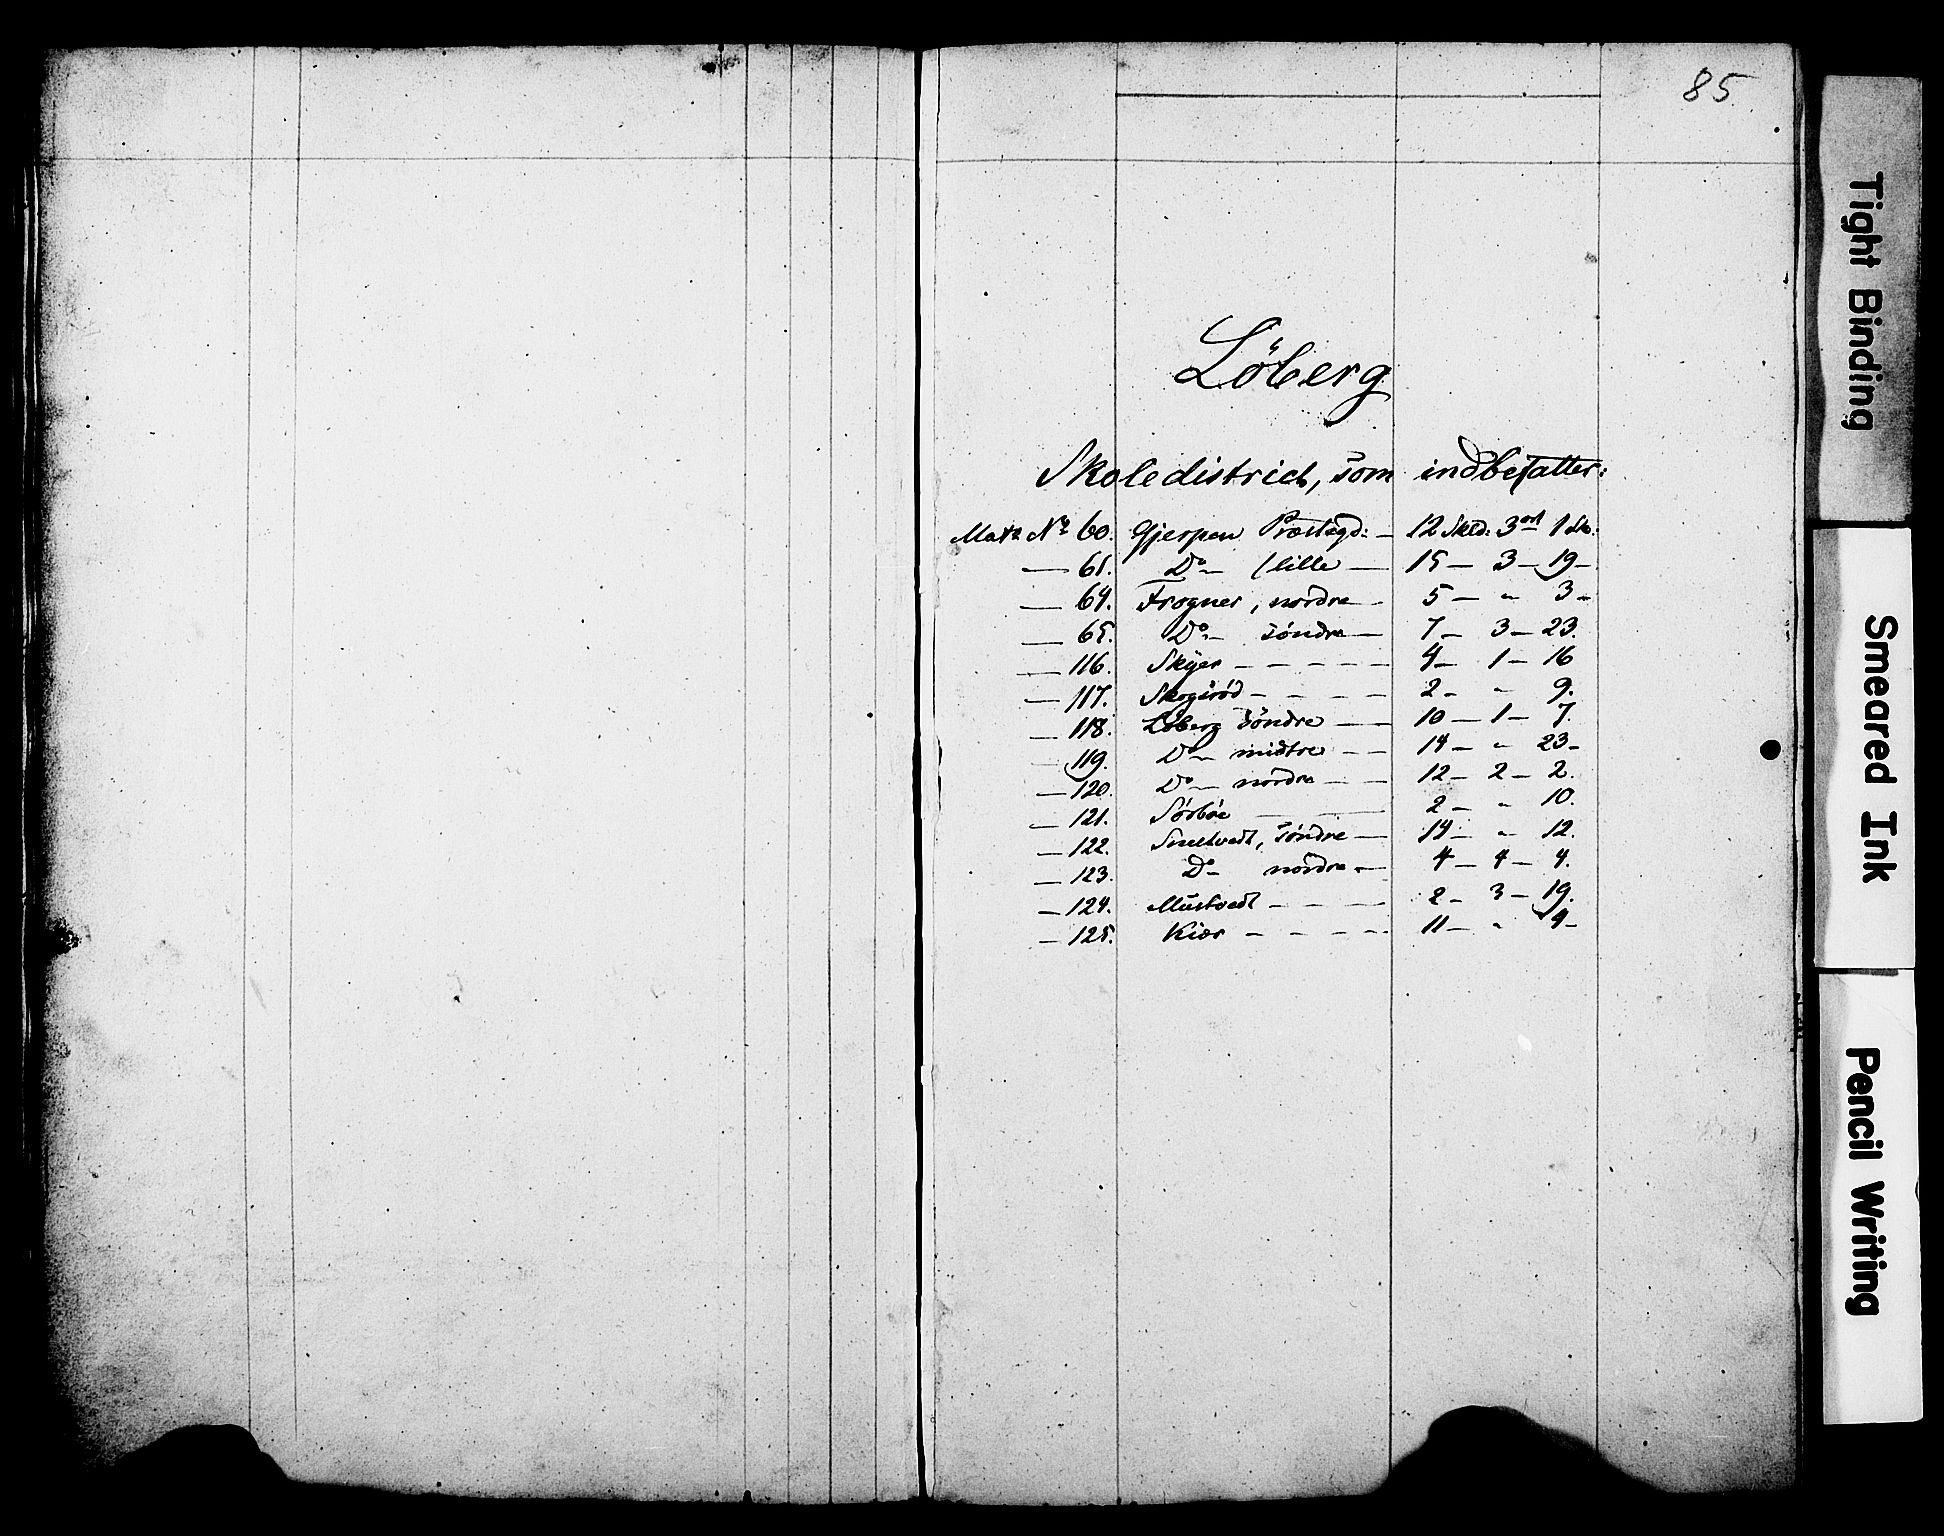 85.
Löberg
Skoledistrict, som indbefatter:
Matr Nº 60. Gjerpen Præstegd: — 12 Skld: 3 ort 1 sk:
— 61. Do — (lille — 15 — 3 — 19 —
— 64. Frogner, nordre — 5 — " 3 —
— 65. Do — söndre — 7 — 3 — 23.
— 116. Skyer — — — — — 4 — 1 — 16
— 117. Skogsröd — — — — 2 — " 9.
— 118. Löberg söndre — — 10 — 1 — 7.
— 119. Do — midtre — — 14 — " 23 —
— 120. Do — nordre — — 12 — 2 — 2.
— 121. Sörböe — — — 2 — " 10.
— 122. Smetvedt, söndre — 14 — " 12.
— 123. Do — nordre — 4 — 4 — 4.
— 124. Mustvedt — — — — 2 — 3 — 19.
— 125. Kiær — — — — 11 — " 9 —
Tight Binding
Smeared Ink
Pencil Writing